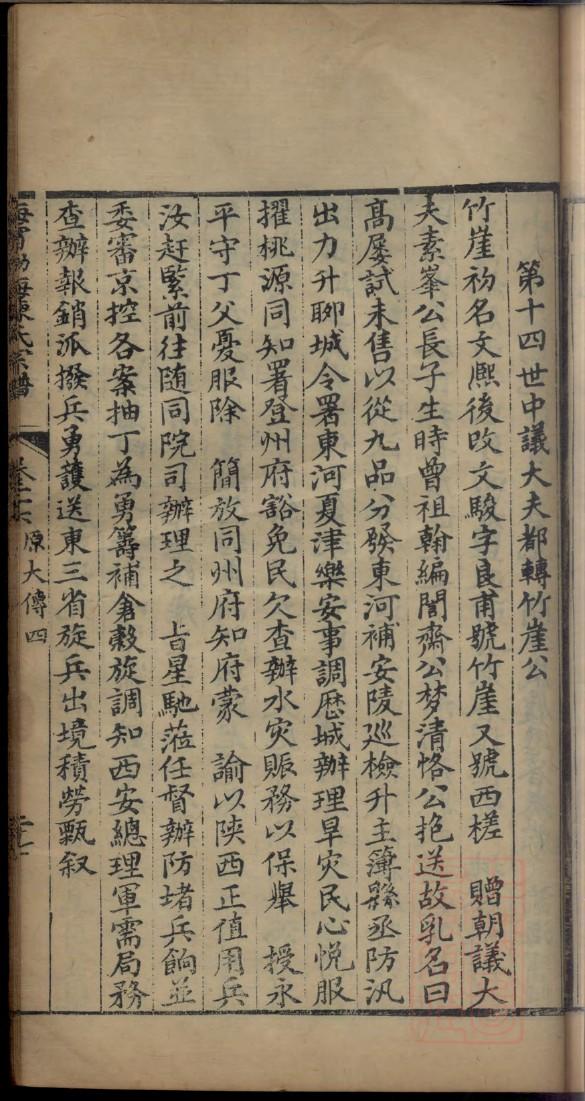 第十四世中議大夫都轉竹崖公
竹崖初名文熈後改文駿字良甫號竹崖又號西槎 贈朝議大
夫素峯公長子生時曾祖翰編誾齋公梦清恪公抱送故乳名曰
髙屡試未售以從九品分發東河補安陵廵檢升主簿縣丞防汛
出力升聊城令署東河夏津樂安事調歷城辦理旱灾民心悅服
擢桃源同知署登州府豁免民欠查辦水灾賑務以保舉 授永
平守丁父憂服除 簡放同州府知府蒙 諭以陕西正值用兵
汝赶緊前往随同院司辦理之 㫖星馳蒞任督辦防堵兵餉並
委審京控各案抽丁為勇籌補倉穀旋調知西安總理軍需局務
查辦報銷派撥兵勇護送東三省旋兵出境積勞甄叙
海寧渤海陳氏宗譜
原大傳四